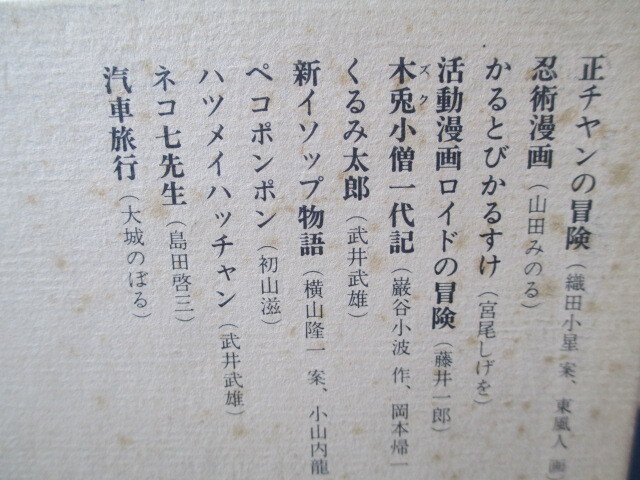 正チヤンの冒険(織田小星 案、東風人 画)
忍術漫画(山田みのる)
かるとびかるすけ(宮尾しげを)
活動漫画ロイドの冒険(藤井一郎)
木兎小僧一代記(巌谷小波 作、岡本帰一
ズク
くるみ太郎(武井武雄)
新イソップ物語(横山隆一 案、小山内龍
ペコポンポン(初山滋)
ハツメイハッチャン(武井武雄)
ネコ七先生(島田啓三)
汽車旅行(大城のぼる)